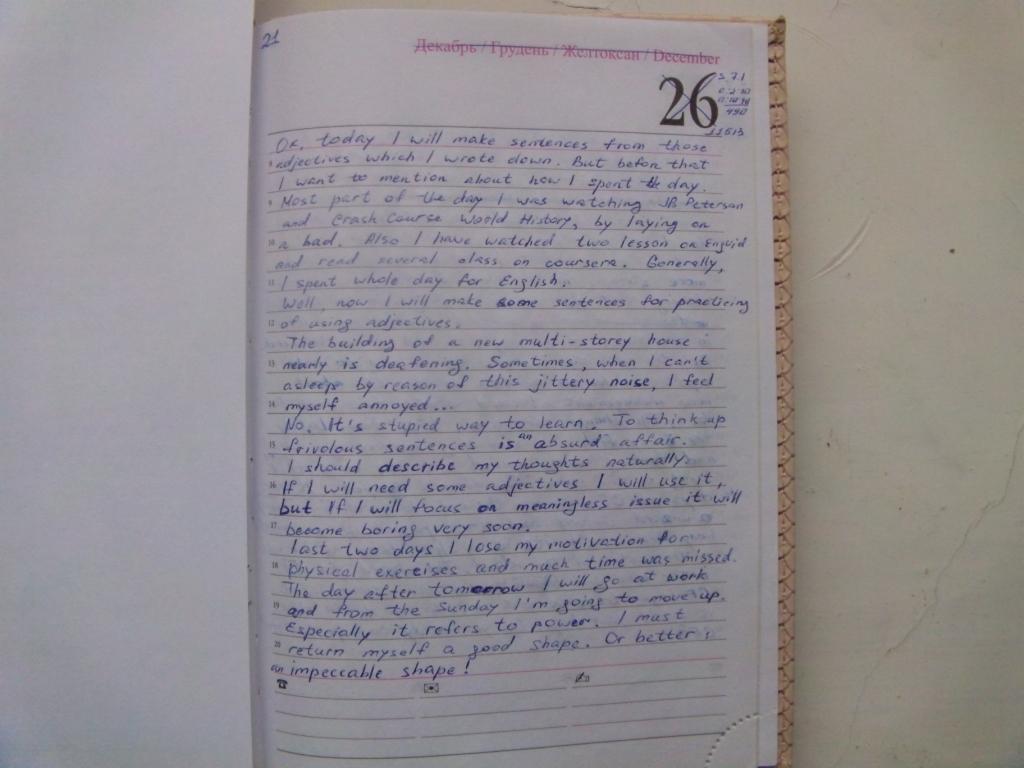 21
Декабрь / Грудень / Желтоксан / December
26
5 7.1
490
11513
Ok, today I will make sentences from those
adjectives which I wrote down. But befor that
I want to mention about how I spent the day.
9 Most part of the day I was watching JB Peterson
and Crash Course World History, by laying on
10 a bad. Also I have watched two lesson on Engvid
and read several class on coursera. Generally,
11 I spent whole day for English.
Well, now I will make some sentences for practicing
12 of using adjectives.
The building of a new multi-storey house
13 nearly is deafening. Sometimes, when I can't
asleep by reason of this jittery noise, I feel
14 myself annoyed...
No. It's stupied way to learn. To think up
15 frivolous sentences is an absurd affair.
I should describe my thoughts naturally.
16 If I will need some adjectives I will use it,
but If I will focus on meaningless issue it will
17 become boring very soon.
last two days I lose my motivation for
18 physical exercises and much time was missed.
The day after tomorrow I will go at work
19 and from the Sunday I'm going to move up.
Especially it refers to power. I must
20 return myself a good shape. Or better:
an impeccable shape!